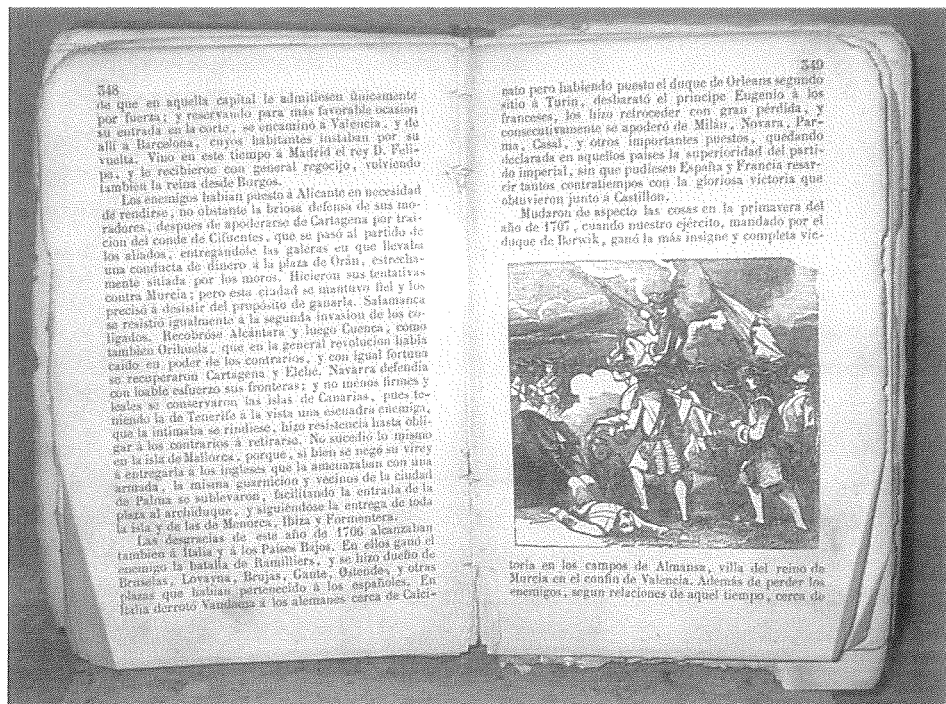 348
de que en aquella capital le admitiesen únicamente
por fuerza; y reservando para más favorable ocasion
su entrada en la corte, se encaminó a Valencia, y de
allí a Barcelona, cuyos habitantes instaban por su
vuelta. Vino en este tiempo á Madrid el rey D. Feli-
pe, y le recibieron con general regocijo, volviendo
tambien la reina desde Burgos.
Los enemigos habian puesto á Alicante en necesidad
de rendirse, no obstante la briosa defensa de sus mo-
radores, despues de apoderarse de Cartagena por trai-
cion del conde de Cifuentes, que se pasó al partido de
los aliados, entregándole las galeras en que llevaba
una conducta de dinero á la plaza de Orán, estrecha-
mente sitiada por los moros. Hicieron sus tentativas
contra Murcia; pero esta ciudad se mantuvo fiel y los
precisó á desistir del propósito de ganarla. Salamanca
se resistió igualmente á la segunda invasion de los co-
ligados. Recobróse Alcántara y luego Cuenca, como
tambien Orihuela, que en la general revolucion habia
caido en poder de los contrarios, y con igual fortuna
se recuperaron Cartagena y Elche. Navarra defendia
con loable esfuerzo sus fronteras; y no menos firmes y
leales se conservaron las islas de Canarias, pues te-
niendo la de Tenerife á la vista una escuadra enemiga,
que la intimaba se rindiese, hizo resistencia hasta obli-
gar á los contrarios á retirarse. No sucedió lo mismo
en la isla de Mallorca, porque, si bien se negó su virey
á entregarla á los ingleses que la amenazaban con una
armada, la misma guarnicion y vecinos de la ciudad
de Palma se sublevaron, facilitando la entrada de la
plaza al archiduque, y siguiéndose la entrega de toda
la isla y de las de Menorca, Ibiza y Formentera.
Las desgracias de este año de 1706 alcanzaban
tambien á Italia y á los Paises Bajos. En ellos ganó el
enemigo la batalla de Ramilliers, y se hizo dueño de
Bruselas, Lovayna, Brujas, Gante, Ostende, y otras
plazas que habian pertenecido á los españoles. En
Italia derrotó Vandoma á los alemanes cerca de Calci-
349
nato pero habiendo puesto el duque de Orleans segundo
sitio á Turin, desbarató el príncipe Eugenio á los
franceses, los hizo retroceder con gran pérdida, y
consecutivamente se apoderó de Milán, Novara, Par-
ma, Casal, y otros importantes puestos, quedando
declarada en aquellos paises la superioridad del parti-
do imperial, sin que pudiesen España y Francia resar-
cir tantos contratiempos con la gloriosa victoria que
obtuvieron junto a Castillon.
Mudaron de aspecto las cosas en la primavera del
año de 1707, cuando nuestro ejército, mandado por el
duque de Berwik, ganó la más insigne y completa vic-
toria en los campos de Almansa, villa del reino de
Murcia en el confin de Valencia. Además de perder los
enemigos, segun relaciones de aquel tiempo, cerca de